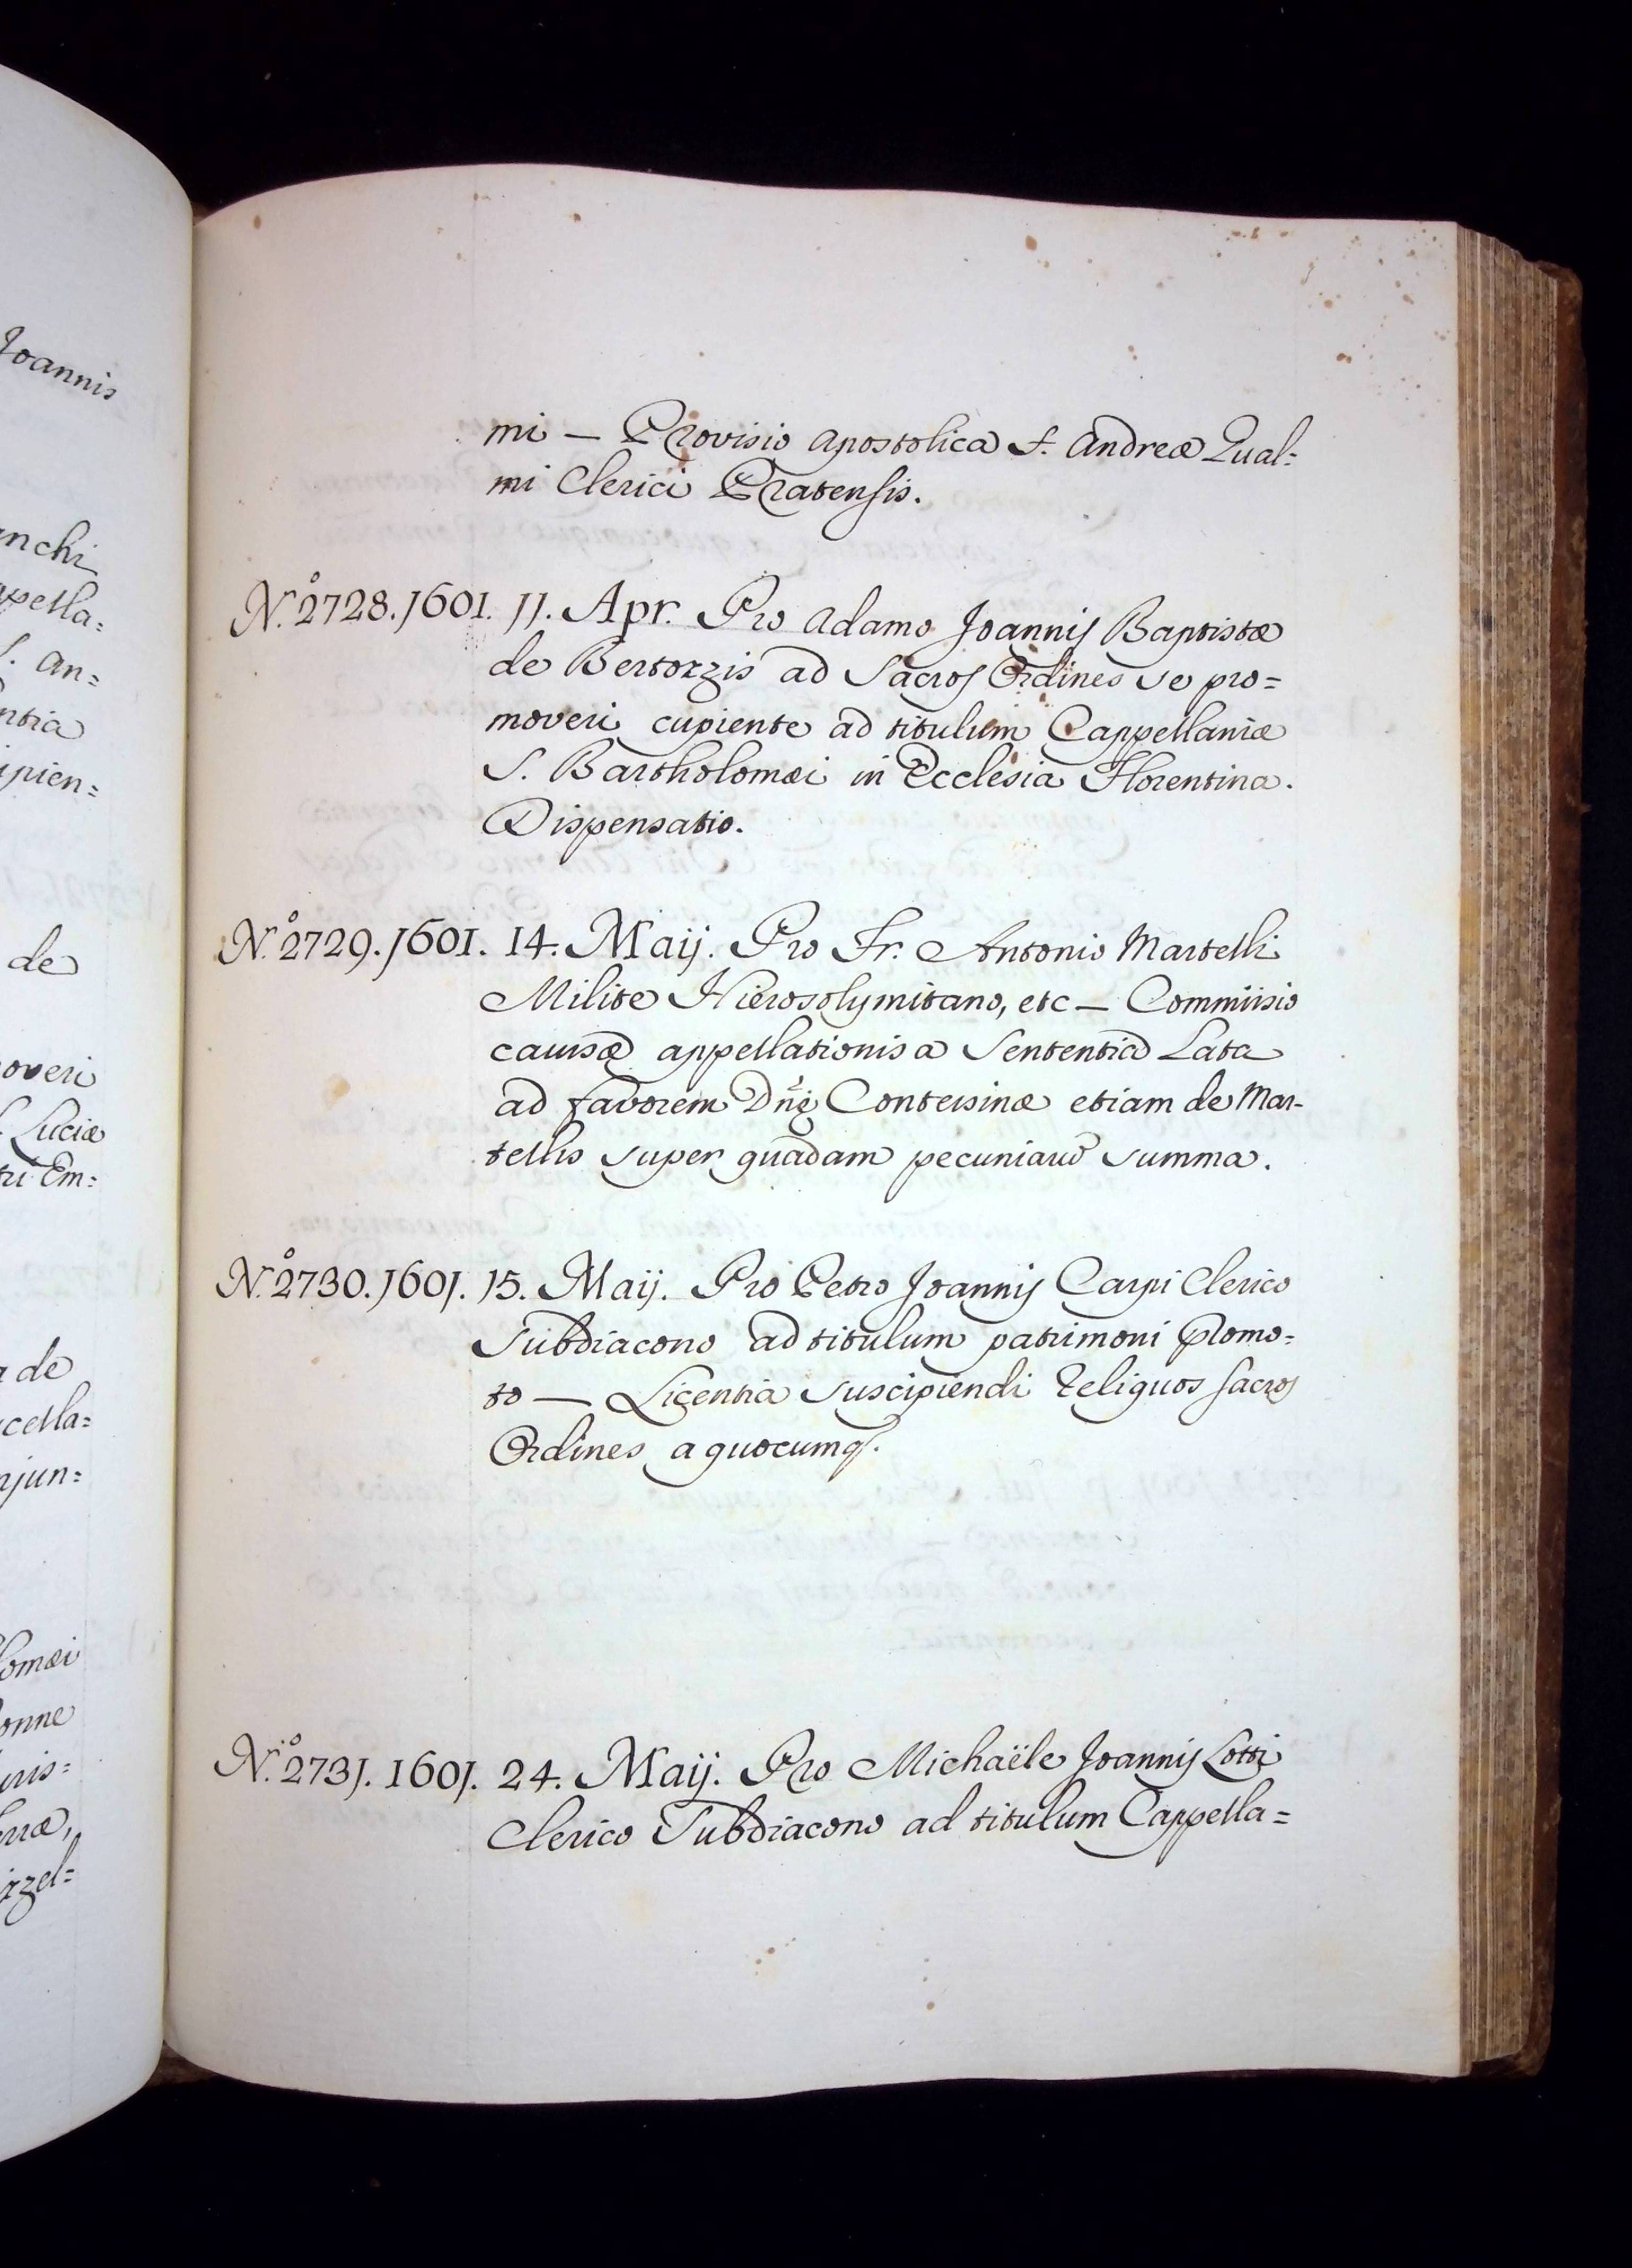 Joannis
nchi
ppella=
S. An=
ntia
ipien=
de
overi
S. Luciæ
tri Em=
a de
cella=
njun=
lomæi
onne
uris=
erræ,
izzel=
mi — Provisio Apostolica S. Andreæ Qual=
mi Clerici Pratensis.
N.º 2728. 1601. 11. Apr. Pro Adamo Joannis Baptistæ
de Bertozzis ad Sacros Ordines se pro=
moveri cupiente ad titulum Cappellaniæ
S. Bartholomæi in Ecclesia Florentina.
Dispensatio.
N.º 2729. 1601. 14. Maij. Pro Fr. Antonio Martelli
Milite Hierosolymitano, etc — Commissio
causæ appellationis a Sententia Lata
ad favorem Dnæ Contessinæ etiam de Mar-
tellis super quadam pecuniarũ summa.
N.º 2730. 1601. 15. Maij. Pro Petro Joannis Carpi Clerico
Subdiacono ad titulum patrimoni promo=
to — Licentia suscipiendi Reliquos sacros
Ordines a quocumq.
N.º 2731. 1601. 24. Maij. Pro Michaële Joannis Lotti
Clerico Subdiacono ad titulum Cappella=